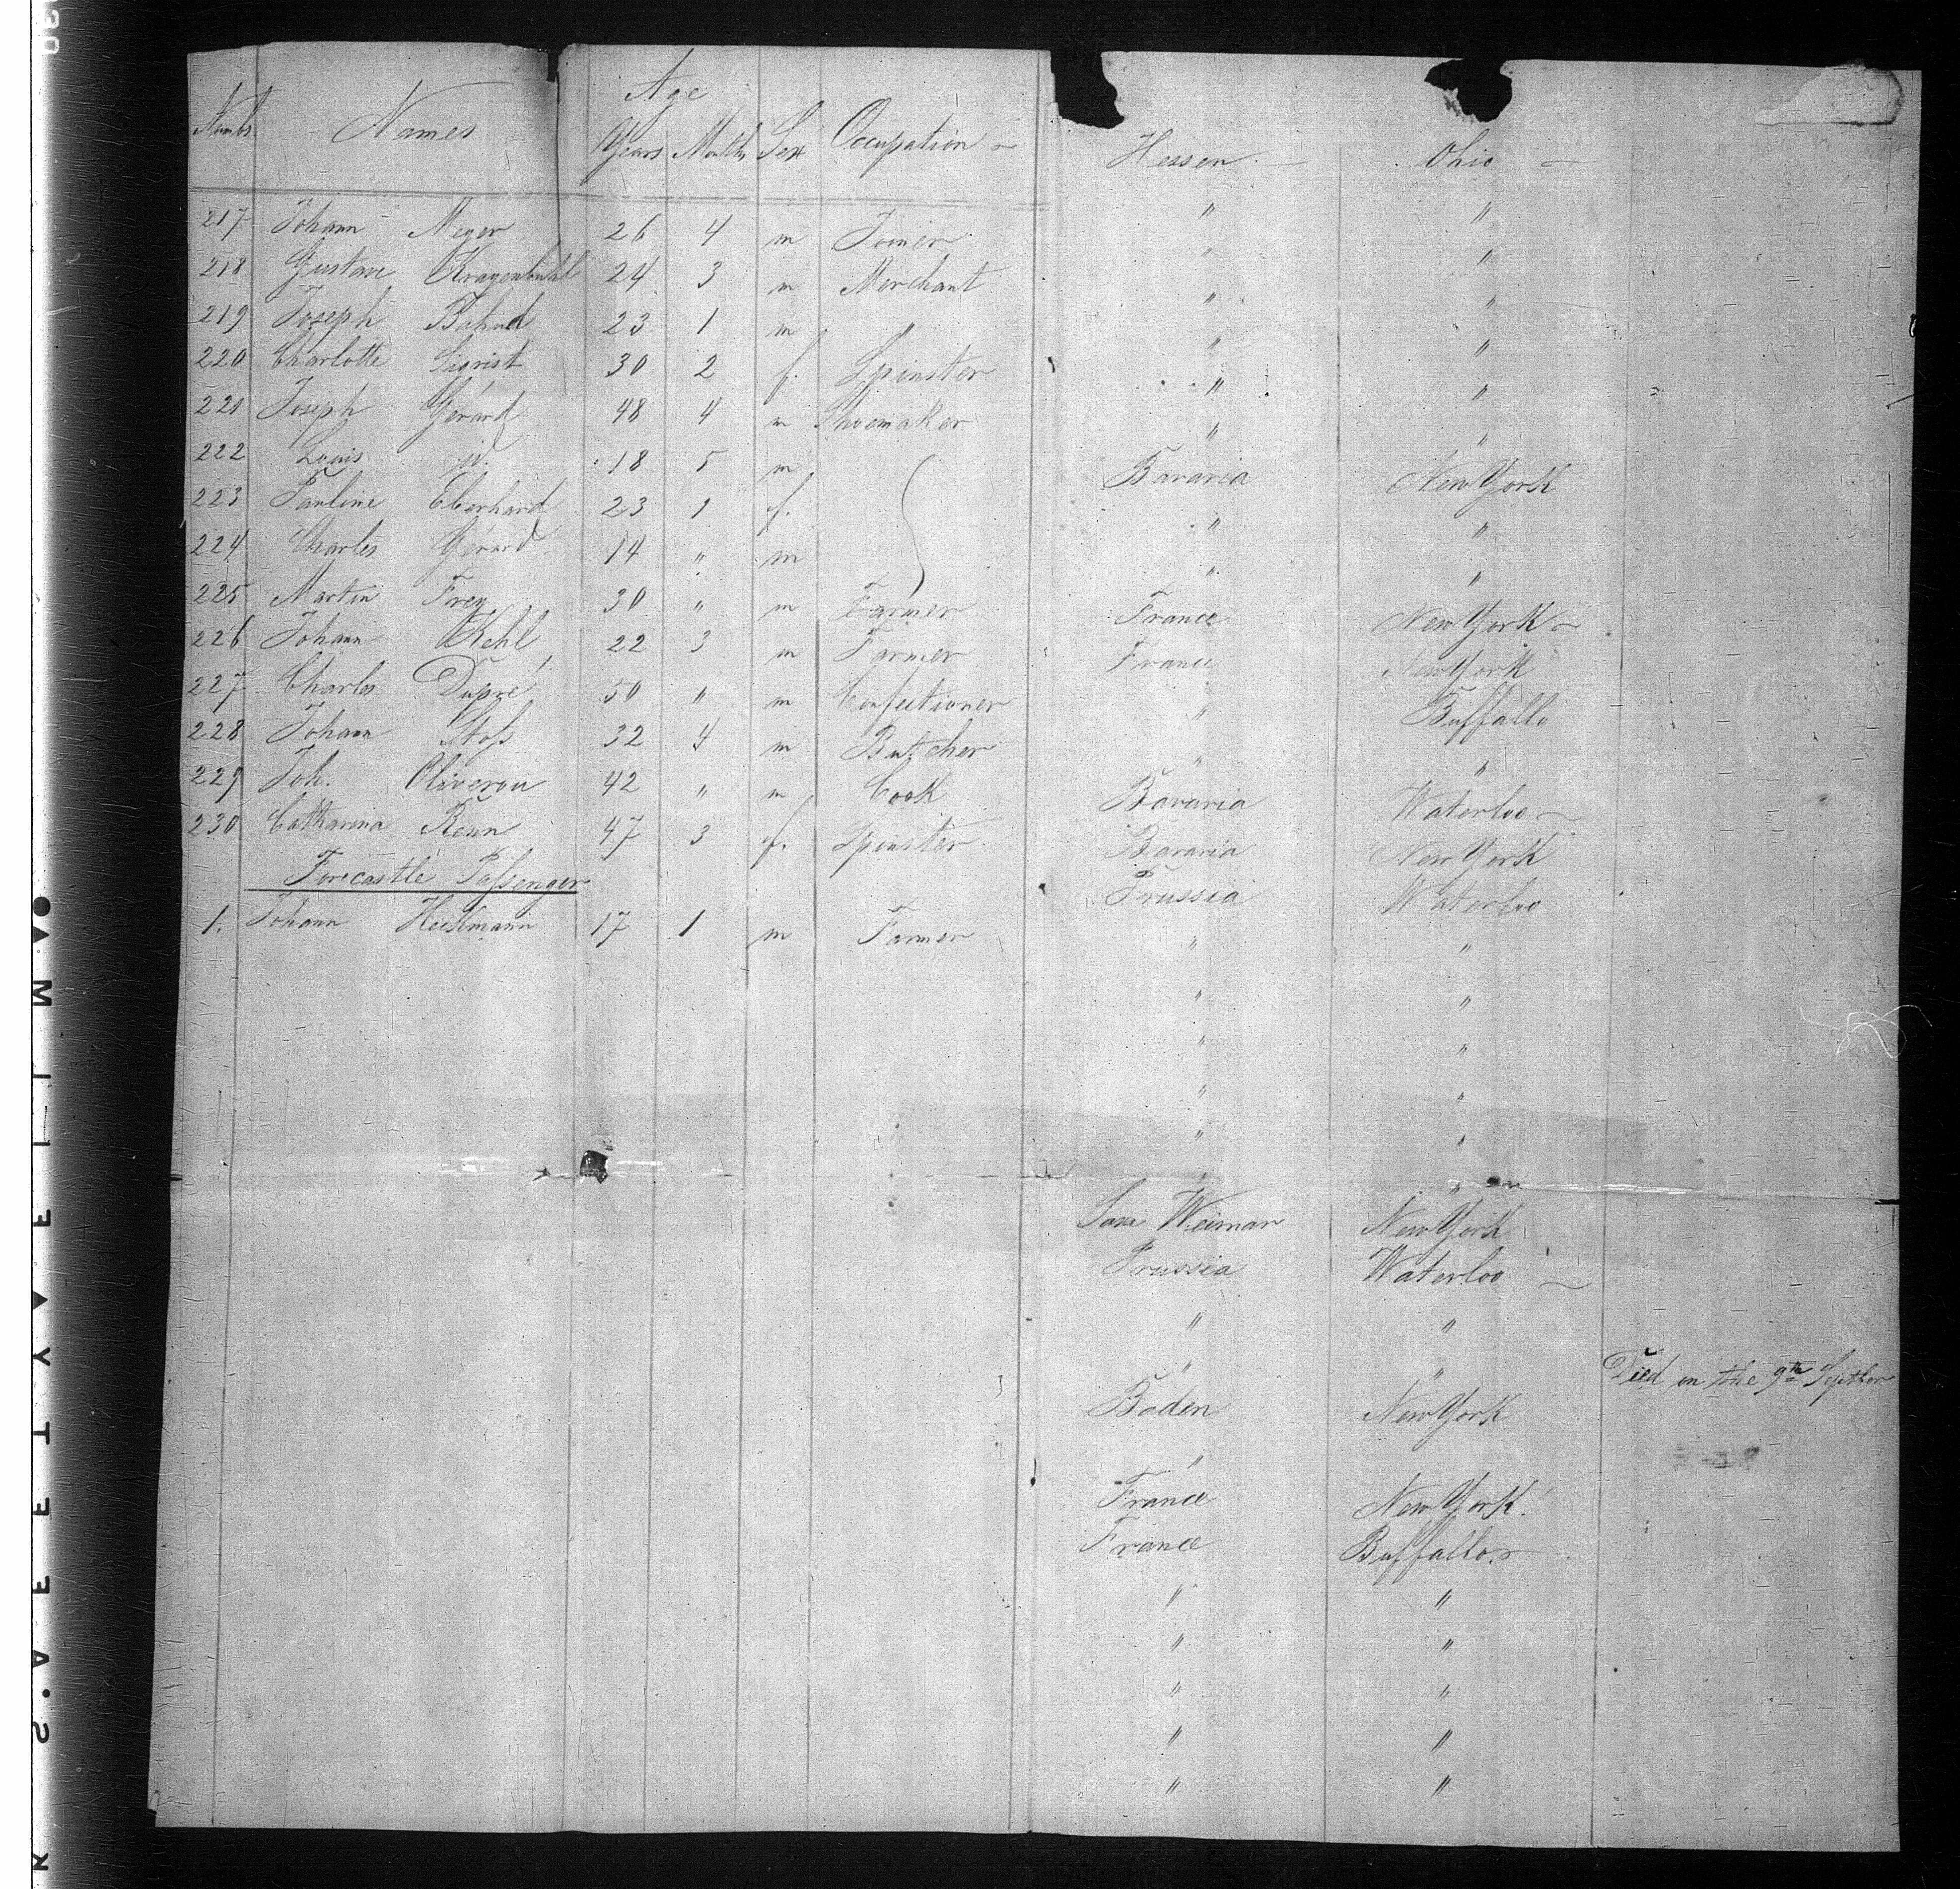 Numbs. Names Age Years Months Sex Occupation
217 Johann Meyer 26 4 m Joiner
218 Gustave Krayenbuhl 24 3 m Merchant
219 Joseph 23 1 m "
220 Charlotte Sigrist 30 2 f. Spinster
221 Joseph Gérard 48 4 m Shoemaker
222 Louis id. 18 5 m
223 Pauline Eberhard 23 1 f.
224 Charles Gérard 14 " m
225 Martin Frey 30 " m Farmer
226 Johann Kehl 22 3 m Farmer
227 Charles Dupré 50 " m Confectioner
228 Johann Stofs 32 4 m Butcher
229 Joh. 42 " m Cook
230 Catharina Renn 47 3 f. Spinster
Forecastle Pafsenger
1. Johann 17 1 m Farmer
Hessen Ohio
" "
" "
" "
" "
" "
" "
Bavaria New York
" "
" "
France New York
France New York
" Buffallo
" "
Bavaria Waterloo
Bavaria New York
Prussia Waterloo
" "
" "
" "
" "
" "
" "
Saxe Weimar New York
Prussia Waterloo
" "
" " Died on the 9th Septber
Baden New York
"
France New York.
France Buffallo
" "
" "
" "
" "
" "